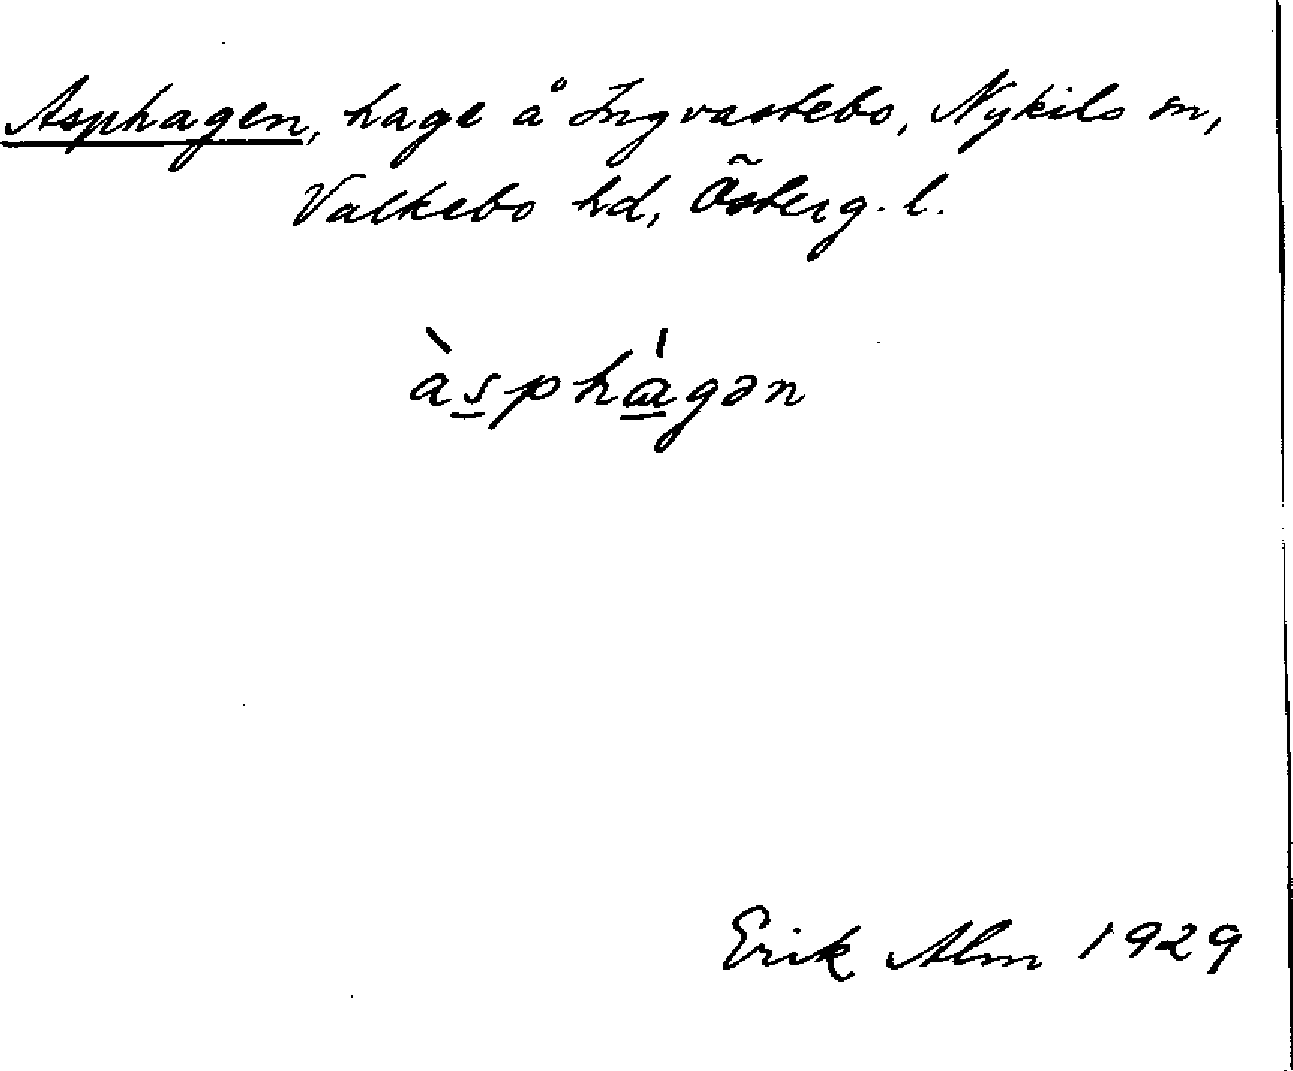 Asphagen, hage å Ingvastebo, Nykils sn,
Valkebo hd, Österg. l.
àsphágən
Erik Alm 1929